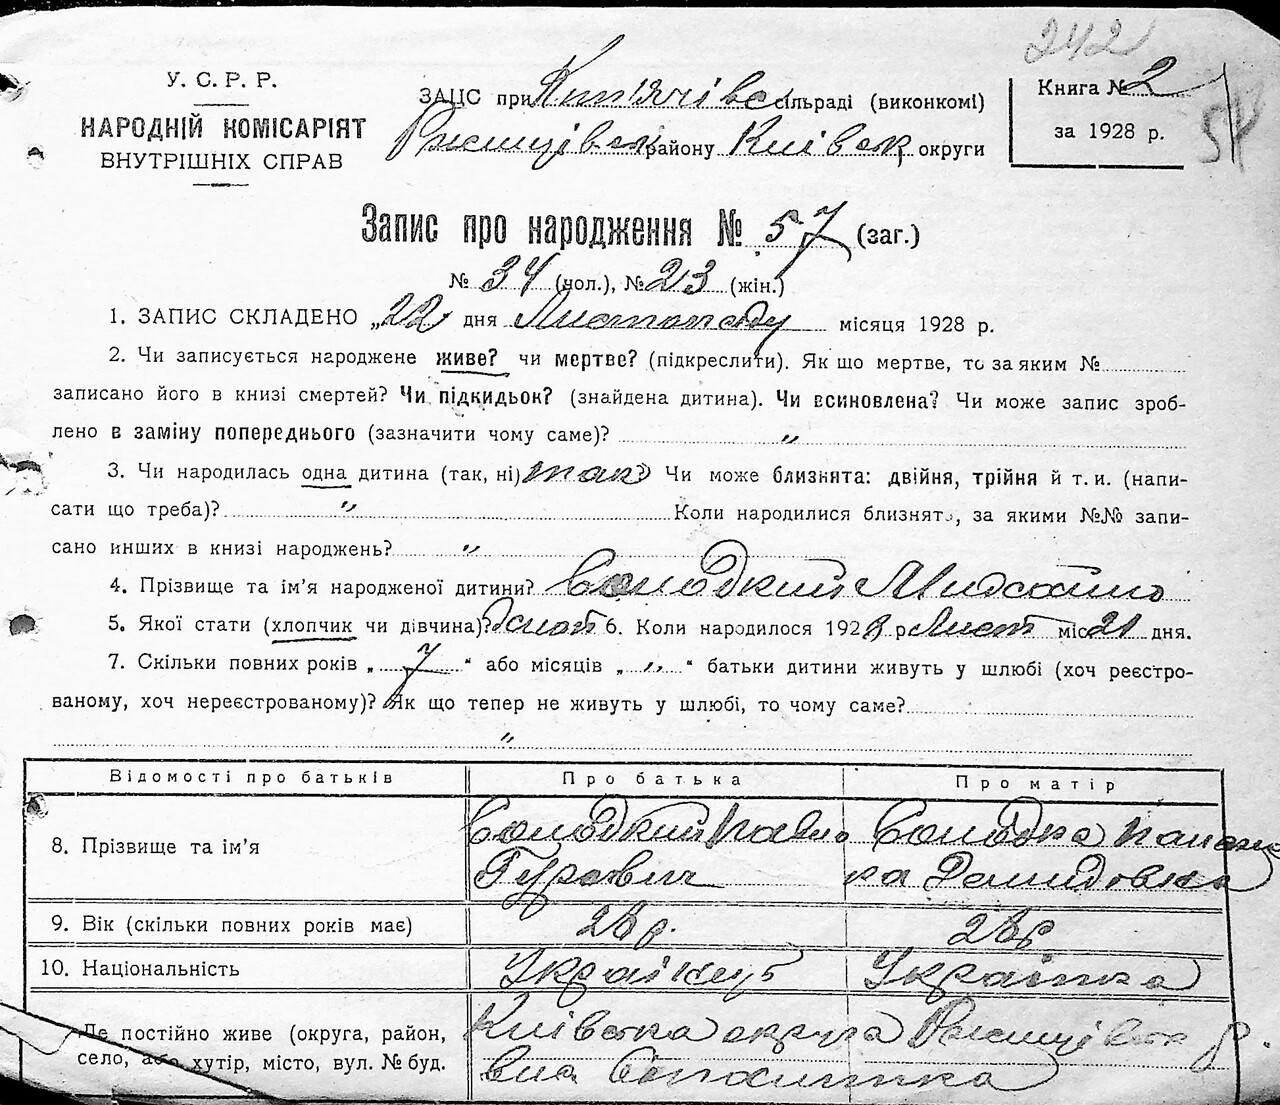 242
У. С. Р. Р.
НАРОДНІЙ КОМІСАРІЯТ
ВНУТРІШНІХ СПРАВ
ЗАЦС при сільраді (виконкомі)
Ржищівськ району Київськ округи
Книга № 2
за 1928 р.
54
Запис про народження № 57 (заг.)
№ 34 (чол.), № 23 (жін.)
1. ЗАПИС СКЛАДЕНО „22 дня Листопаду місяця 1928 р.
2. Чи записується народжене живе? чи мертве? (підкреслити). Як що мертве, то за яким №
записано його в книзі смертей? Чи підкидьок? (знайдена дитина). Чи всиновлена? Чи може запис зроб-
лено в заміну попереднього (зазначити чому саме)? „
3. Чи народилась одна дитина (так, ні) так Чи може близнята: двійня, трійня й т. и. (напи-
сати що треба)? „ Коли народилися близнята, за якими №№ запи-
сано инших в книзі народжень? „
4. Прізвище та ім'я народженої дитини? Солодкий Михайло
5. Якої стати (хлопчик чи дівчина)? 6. Коли народилося 1928 р Лист міс 21 дня.
7. Скільки повних років „ 7 “ або місяців „ „ “ батьки дитини живуть у шлюбі (хоч реєстро-
ваному, хоч нереєстрованому)? Як що тепер не живуть у шлюбі, то чому саме?
„
Відомості про батьків Про батька Про матір
8. Прізвище та ім'я Солодкий Павло Гурович Солодка Демидовна
9. Вік (скільки повних років має) 28 р. 28 р
10. Національність Українець Українка
Де постійно живе (округа, район, Київська округа Ржищівськ р.
село, або хутір, місто, вул. № буд.